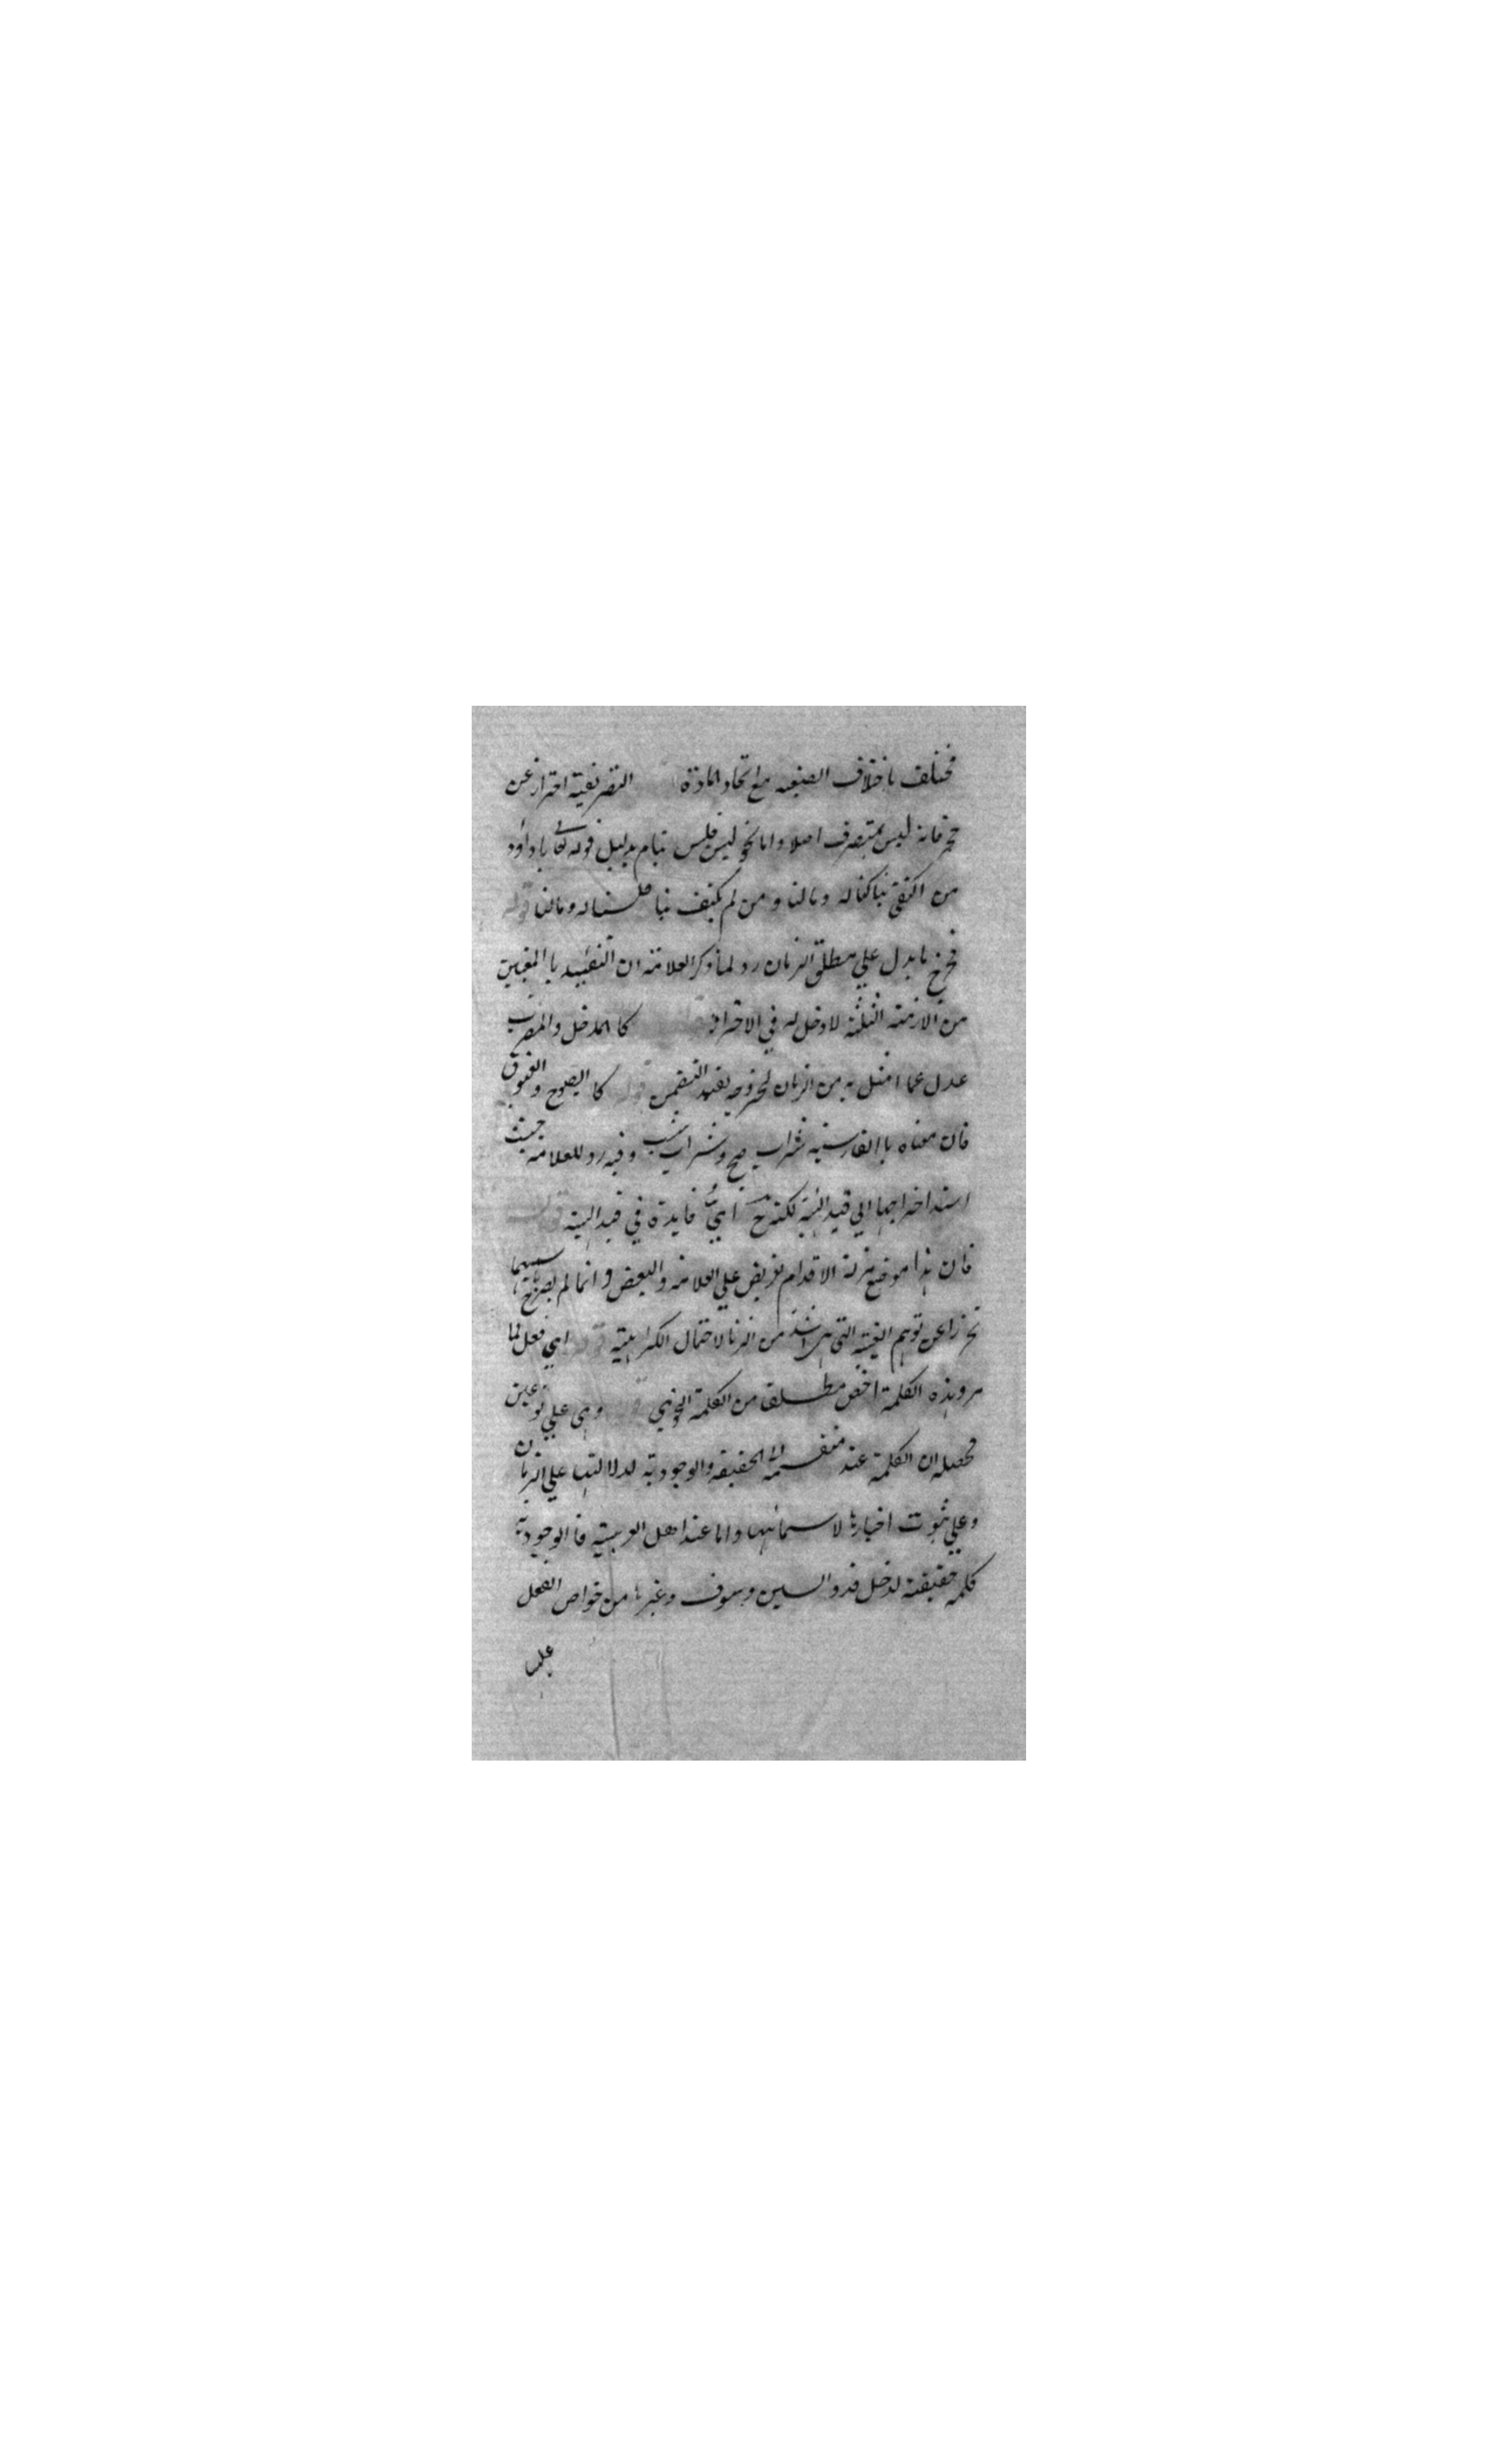 فيختلف باختلاف الصيغه مع اتحاد المادة التصريفية احتراز عن
حجر فانه ليس بمتصرف اصلا واما نحو ليس فليس بتام بدليل قوله تعالى يا داود
من اكتفى بنا كنا له وما لنا ومن لم يكتف بنا فلسنا له وما لنا قوله
فيخرج ما يدل على مطلق الزمان رد لما ذكر العلامة ان التقييد بالمعين
من الازمنة الثلثة لا دخل له في الاحتراز قوله كا المدخل والمضرب
عدل عما امثل به من الزمان لخروجه بقيد التضمن قوله كا الصبوح والغبوق
فان معناه با الفارسيه شراب صبح وشراب شب وفيه رد للعلامه حيث
اسند اخراجها الي قيد الهيئة لكنه ح ايُّ فايدة في قيد الهيئة قوله
فان هذا موضع مزلة الاقدام تعريض علي العلامة والبعض وانما لم يصرح باسمهما
تحرزا عن توهم الغيبة التي هي اشد من الزنا لاحتمال الكراهية قوله اي فعل لما
مر وهذه الكلمة اخص مطلقا من الكلمة النحوي قوله وهي علي نوعين
محصله ان الكلمة عند منقسمة الى الحقيقة والوجودية لدلالتها علي الزمان
وعلي ثبوت اخبارها لاسمائها واما عند اهل العربية فا الوجودية
كلمه حقيقة لدخل قد والسين وسوف وغيرها من خواص الفعل
عليها